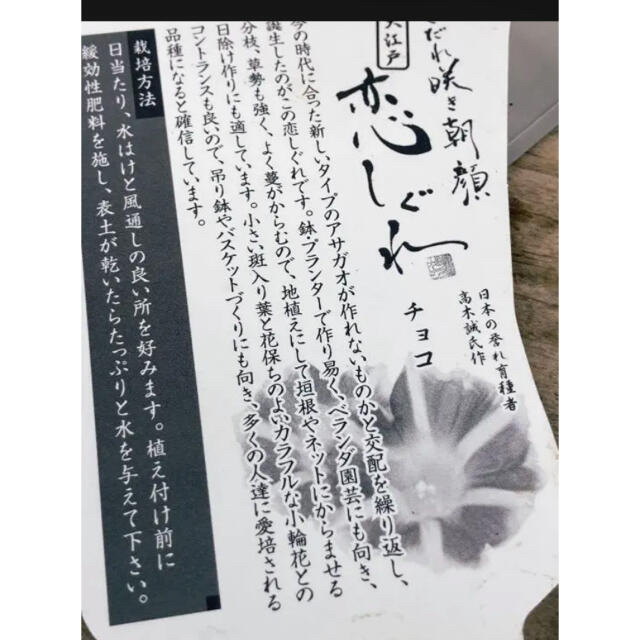 だれ咲き朝顔
大江戸
恋しぐれ
チョコ
日本の誉れ育種者
高木誠氏作
今の時代に合った新しいタイプのアサガオが作れないものかと交配を繰り返し、
誕生したのがこの恋しぐれです。鉢・プランターで作り易く、ベランダ園芸にも向き、
分枝、草勢も強く、よく蔓がからむので、地植えにして垣根やネットにからませる
日除け作りにも適しています。小さい斑入り葉と花保ちのよいカラフルな小輪花との
コントランスも良いので、吊り鉢やバスケットづくりにも向き、多くの人達に愛培される
品種になると確信しています。
栽培方法
日当たり、水はけと風通しの良い所を好みます。植え付け前に
緩効性肥料を施し、表土が乾いたらたっぷりと水を与えて下さい。